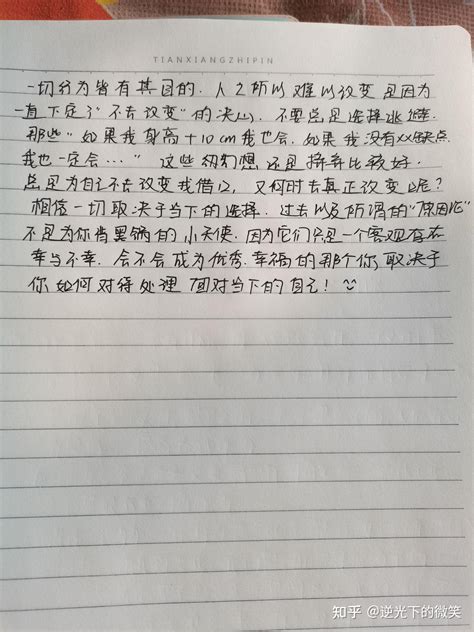 TIANXIANGZHIPIN
一切行为皆有其目的. 人之所以难以改变是因为
一直下定了"不去改变"的决心. 不要总是选择逃避.
那些"如果我身高+10cm我也会. 如果我没有xx缺点
我也一定会…" 这些幻想还是摒弃比较好.
总是为自己不去改变找借口, 又何时去真正改变呢?
相信一切取决于当下的选择. 过去以及所谓的"原因论"
不是为你背黑锅的小天使. 因为它们只是一个客观存在
幸与不幸. 会不会成为优秀. 幸福的那个你, 取决于
你如何对待处理 面对当下的自己!
知乎 @逆光下的微笑